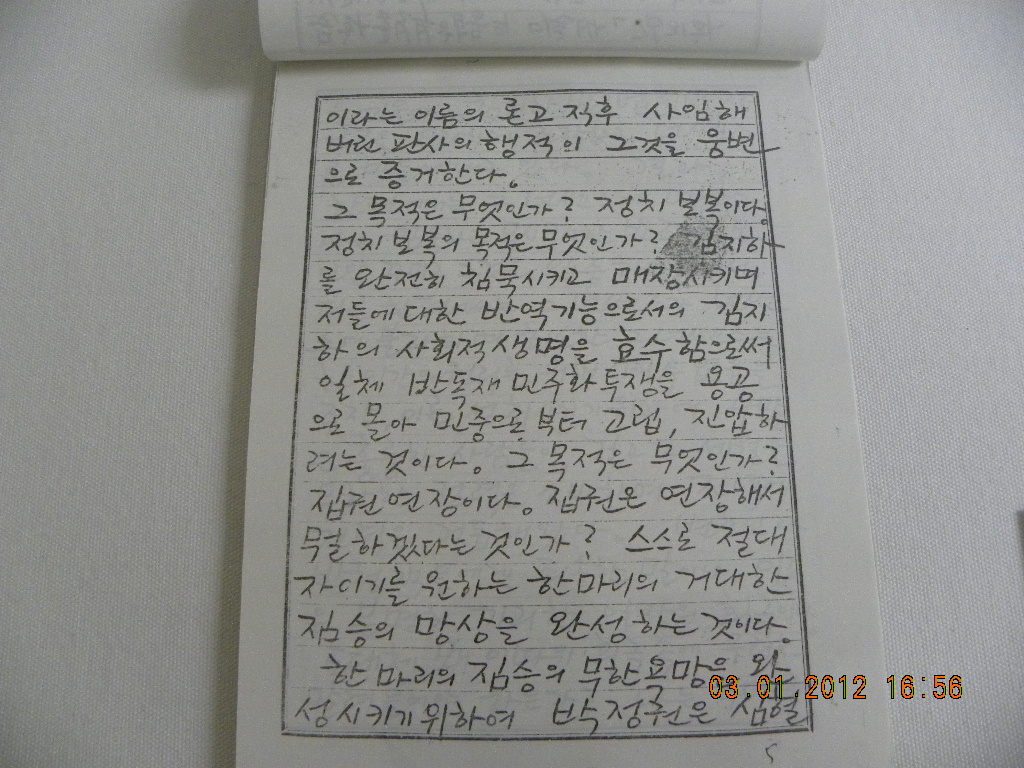 이라는 이름의 론고 직후 사임해
버린 판사의 행적이 그것을 웅변
으로 증거한다.
그 목적은 무엇인가? 정치 보복이다.
정치 보복의 목적은 무엇인가? 김지하
를 완전히 침묵시키고 매장시키며
저들에 대한 반역기능으로서의 김지
하의 사회적 생명을 효수함으로써
일체 반독재 민주화 투쟁을 용공
으로 몰아 민중으로부터 고립, 진압하
려는 것이다. 그 목적은 무엇인가?
집권연장이다. 집권은 연장해서
무얼하겠다는 것인가? 스스로 절대
자이기를 원하는 한마리의 거대한
짐승의 망상을 완성하는 것이다.
한 마리의 짐승의 무한욕망을 완
성시키기위하여 박정권은 심혈
03.01.2012 16:56
5